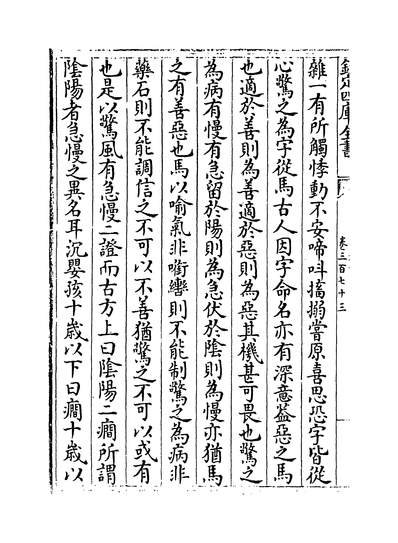 欽定四庫全書
卷三百七十三
雜一有所觸悸動不安啼呌搐搦嘗原喜思恐字皆從
心驚之為字從馬古人因字命名亦有深意葢惡之馬
也適於善則為善適於惡則為惡其機甚可畏也驚之
為病有慢有急留於陽則為急伏於陰則為慢亦猶馬
之有善惡也馬以喻氣非銜轡則不能制驚之為病非
藥石則不能調信之不可以不善猶驚之不可以或有
也是以驚風有急慢二證而古方上曰陰陽二癎所謂
陰陽者急慢之異名耳沉嬰孩十歳以下曰癎十歳以